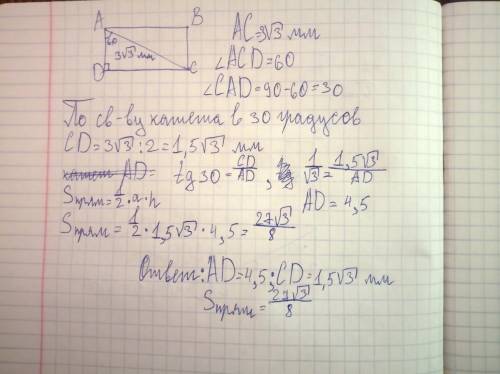 A B
60
3√3 мм
D C
AC=3√3 мм
∠ACD=60
∠CAD=90-60=30
По св-ву катета в 30 градусов
CD=3√3:2=1,5√3 мм
AD= tg30=CD/AD, 1/√3=1,5√3/AD
AD=4,5
Sпрям=1/2·a·h
Sпрям=1/2·1,5√3·4,5=27√3/8
Ответ: AD=4,5; CD=1,5√3 мм
Sпрям=27√3/8